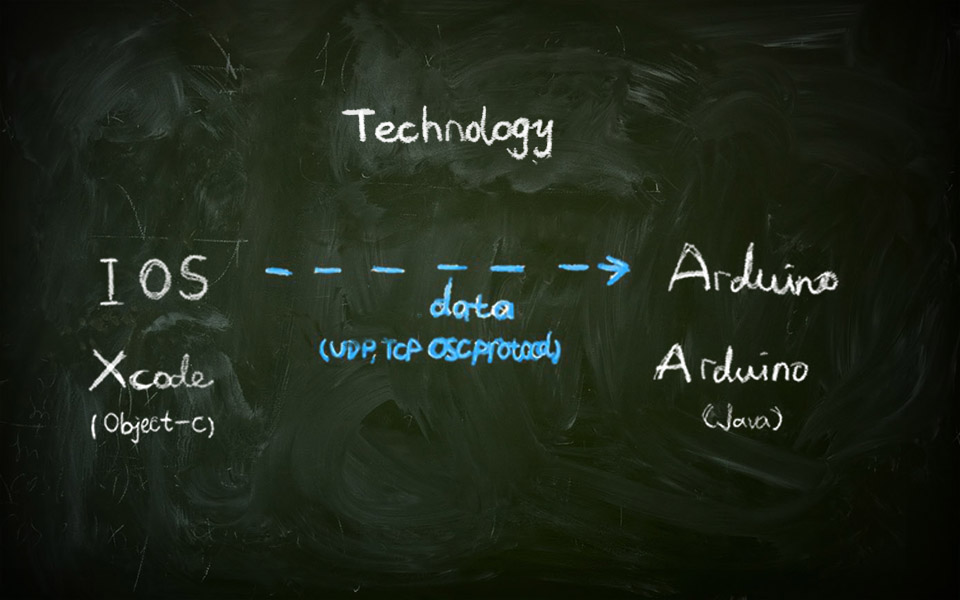 Technology
IOS
data
Arduino
(UDP, TCP OSC protocol)
Xcode
Arduino
(Object-C)
(Java)